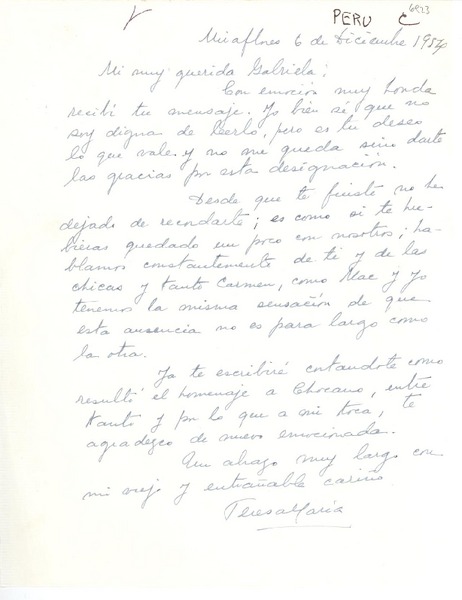 6923
PERU C
Miraflores 6 de Diciembre 1954
Mi muy querida Gabriela;
Con emoción muy honda
recibí tu mensaje. Yo bien sé que no
soy digna de leerlo, pero es tu deseo
lo que vale y no me queda sino darte
las gracias por esta designación.
Desde que te fuiste no he
dejado de recordarte; es como si te hu-
bieras quedado un poco con nosotros; ha-
blamos constantemente de ti y de las
chicas y tanto Carmen, como Mac y yo
tenemos la misma sensación de que
esta ausencia no es para largo como
la otra.
Ya te escribiré contandote como
resultó el homenaje a Chocano, entre
tanto y por lo que a mi toca, te
agradezco de nuevo emocionada.
Un abrazo muy largo con
mi viejo y entrañable cariño
Teresa María